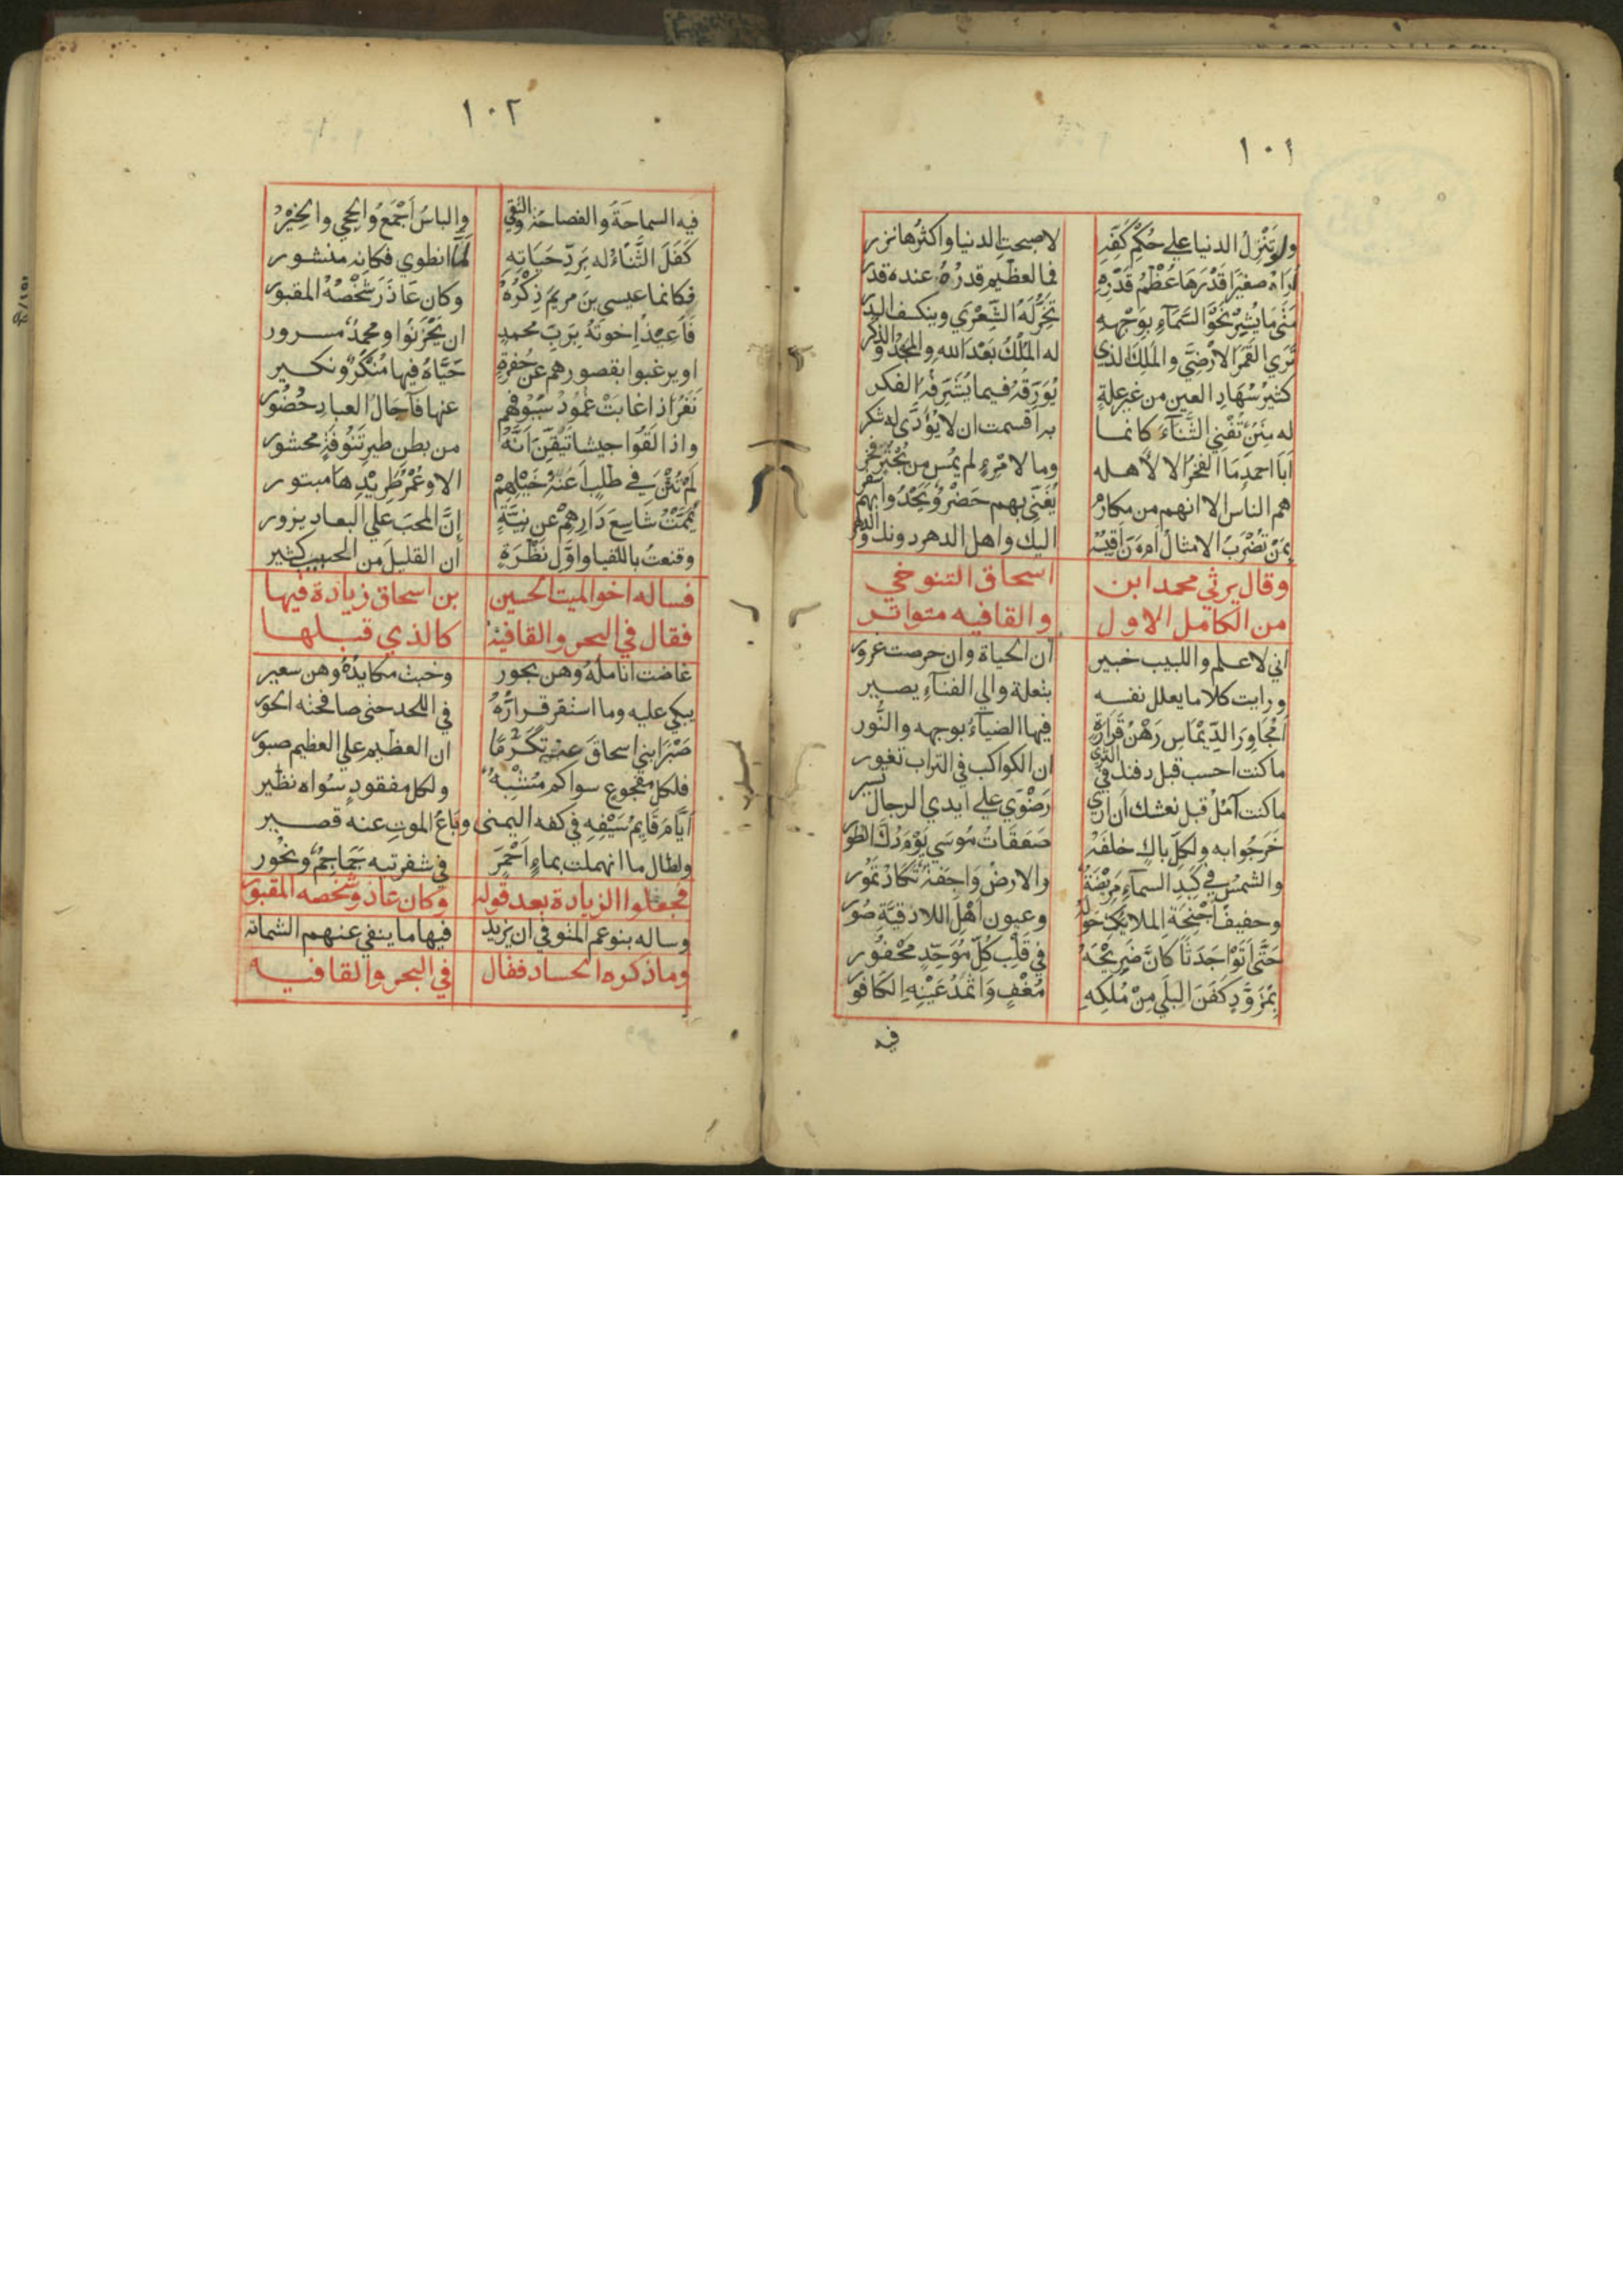 ١٠١
ولو تَنْزِلُ الدنيا علي حُكْمِ كَفِّهِ لاصبحتِ الدنيا واكثرُها نزر
اَرَاهُ صغيرًا قَدْرَهَا عُظْمُ قَدْرِهِ فما لعظيم قدرُهُ عنده قدر
مَتَى مَا يُشِرْ نَحْوَ السَّمَآءِ بِوَجْهِهِ تَخِرُّ لَهُ الشِّعْرَي وينكسف البدر
تَرَي القَمَرَ الارْضِيَّ والمَلِكَ الذي له المُلْكُ بَعْدَ الله والمَجْدُ والذكر
كثيرُ سُهَادِ العينِ من غير علةٍ يُوَرِّقُهُ فيما يُشَرِّفُهُ الفكر
له مِنَنٌ تُفْنِي الثَّنَآءَ كانما به اقسمت ان لا يُؤَدَّي له شكر
اَبَا احمدٍ مَا الفخرُ الا لاهله وما لامْرِءٍ لم يُمْسِ من بُحْتُرٍ فخر
هم الناس الا انهم من مكارمٍ يُغَنِّي بهم حَضْرٌ وَيَحْدُوا بهم سفر
بِمَنْ تُضْرَبُ الامثالُ اَمْ مَنْ اَقِيْسُهُ اليك واهل الدهر دونك والدهر
وقال يرثي محمد ابن اسحاق التنوخي
من الكامل الاول والقافيه متواتر
اني لاعلم واللبيب خبير ان الحياة وان حرصت غرور
ورايت كلا ما يعلل نفسه بتعلة والي الفنآءِ يصير
اَمُجَاوِرَ الدِّيْمَاسِ رَهْنَ قَرَارَةٍ فيها الضيآءُ بوجهه والنُّور
ما كنت احسب قبل دفنك في الثري ان الكواكب في التراب تغور
ما كنت آمُلُ قبل نعشك اَن اري رَضْوَي علي ايدي الرجال تسير
خَرَجُوا به ولكلِّ باكٍ خلفَهُ صَعَقَاتُ مُوسَي يَوْمَ دُكَّ الطور
والشمسُ في كَبِدِ السمآءِ مَرِيْضَةٌ والارضُ وَاجِفَةٌ تَكَادُ تَمُور
وحفيفُ اَجْنِحَةِ الملايكِ حوله وعيون اَهْلِ اللاذقيَّةِ صُور
حَتَّى اَتَوْا جَدَثًا كَاَنَّ ضَرِيْحَهُ في قَلْبِ كُلِّ مُوَحِّدٍ مَحْفُور
بِمُزَوَّدٍ كَفَنَ البِلَي مِنْ مُلْكِهِ مُغْفٍ وَاثْمَدُ عَيْنِهِ الكافور
فيه
١٠٢
فيه السماحَةُ والفصاحةُ والتقي والباسُ اَجْمَعُ والحجي والخِيْرُ
كَفَلَ الثَّنَآءُ له بِرَدِّ حَيَاتِهِ لمَّا انطوي فكانه منشور
فكانما عيسي بنَ مريمَ ذِكْرُهُ وكان عَاذَرَ شَخْصُهُ المقبور
فَاُعِيْذُ اِخوتَهُ بِرَبِّ محمدٍ ان يَحْزَنُوا ومحمدٌ مسرور
او يرغبوا بقصورهم عن حُفرةٍ حَيَّاهُ فيها مُنْكَرٌ ونكير
نَفَرٌ اذا غابتْ غُمُودُ سُيُوفِهِمْ عنها فآجَالُ العبادِ حُضُور
واذا لَقُوا جيشا تَيَقَّنَ اَنَّهُ من بطن طير تَنُوفَةٍ محشور
لم تُثْنَ في طلبٍ اَعِنَّةُ خَيْلِهِمْ الا وعُمْرُ طَرِيْدِهَا مبتور
يَمَّمْتُ شَاسِعَ دَارِهِمْ عن نِيَّةٍ اِنَّ المحبَ علي البعادِ يزور
وقنعتُ باللقيا واوَّلِ نَظْرَةٍ ان القليلَ من الحبيب كثير
فساله اخو الميت الحسين بن اسحاق زيادة فيها
فقال في البحر والقافية كالذي قبلها
غاضت انامله وهن بحور وخبت مكايدُهُ وهن سعير
يبكي عليه وما استقر قرارُهُ في اللحد حتي صافحته الحور
صَبْرًا بني اسحاقَ عنه تَكَرُّمًا ان العظيم علي العظيم صبور
فلكل مفجوعٍ سواكم مُشْبِهٌ ولكل مفقودٍ سُواه نظير
اَيَّامَ قَايِمُ سَيْفِهِ في كفه اليمني وبَاعُ الموتِ عنه قصير
ولطال ما انهملت بماءٍ اَحْمَرَ في شفرتيه جَمَاجِمٌ ونحُور
فجعلوا الزيادة بعد قوله وكان عاذر شخصه المقبور
وساله بنو عم المتوفي ان يزيد فيها ما ينفي عنهم الشماتة
وما ذكره الحساد فقال في البحر والقافيه